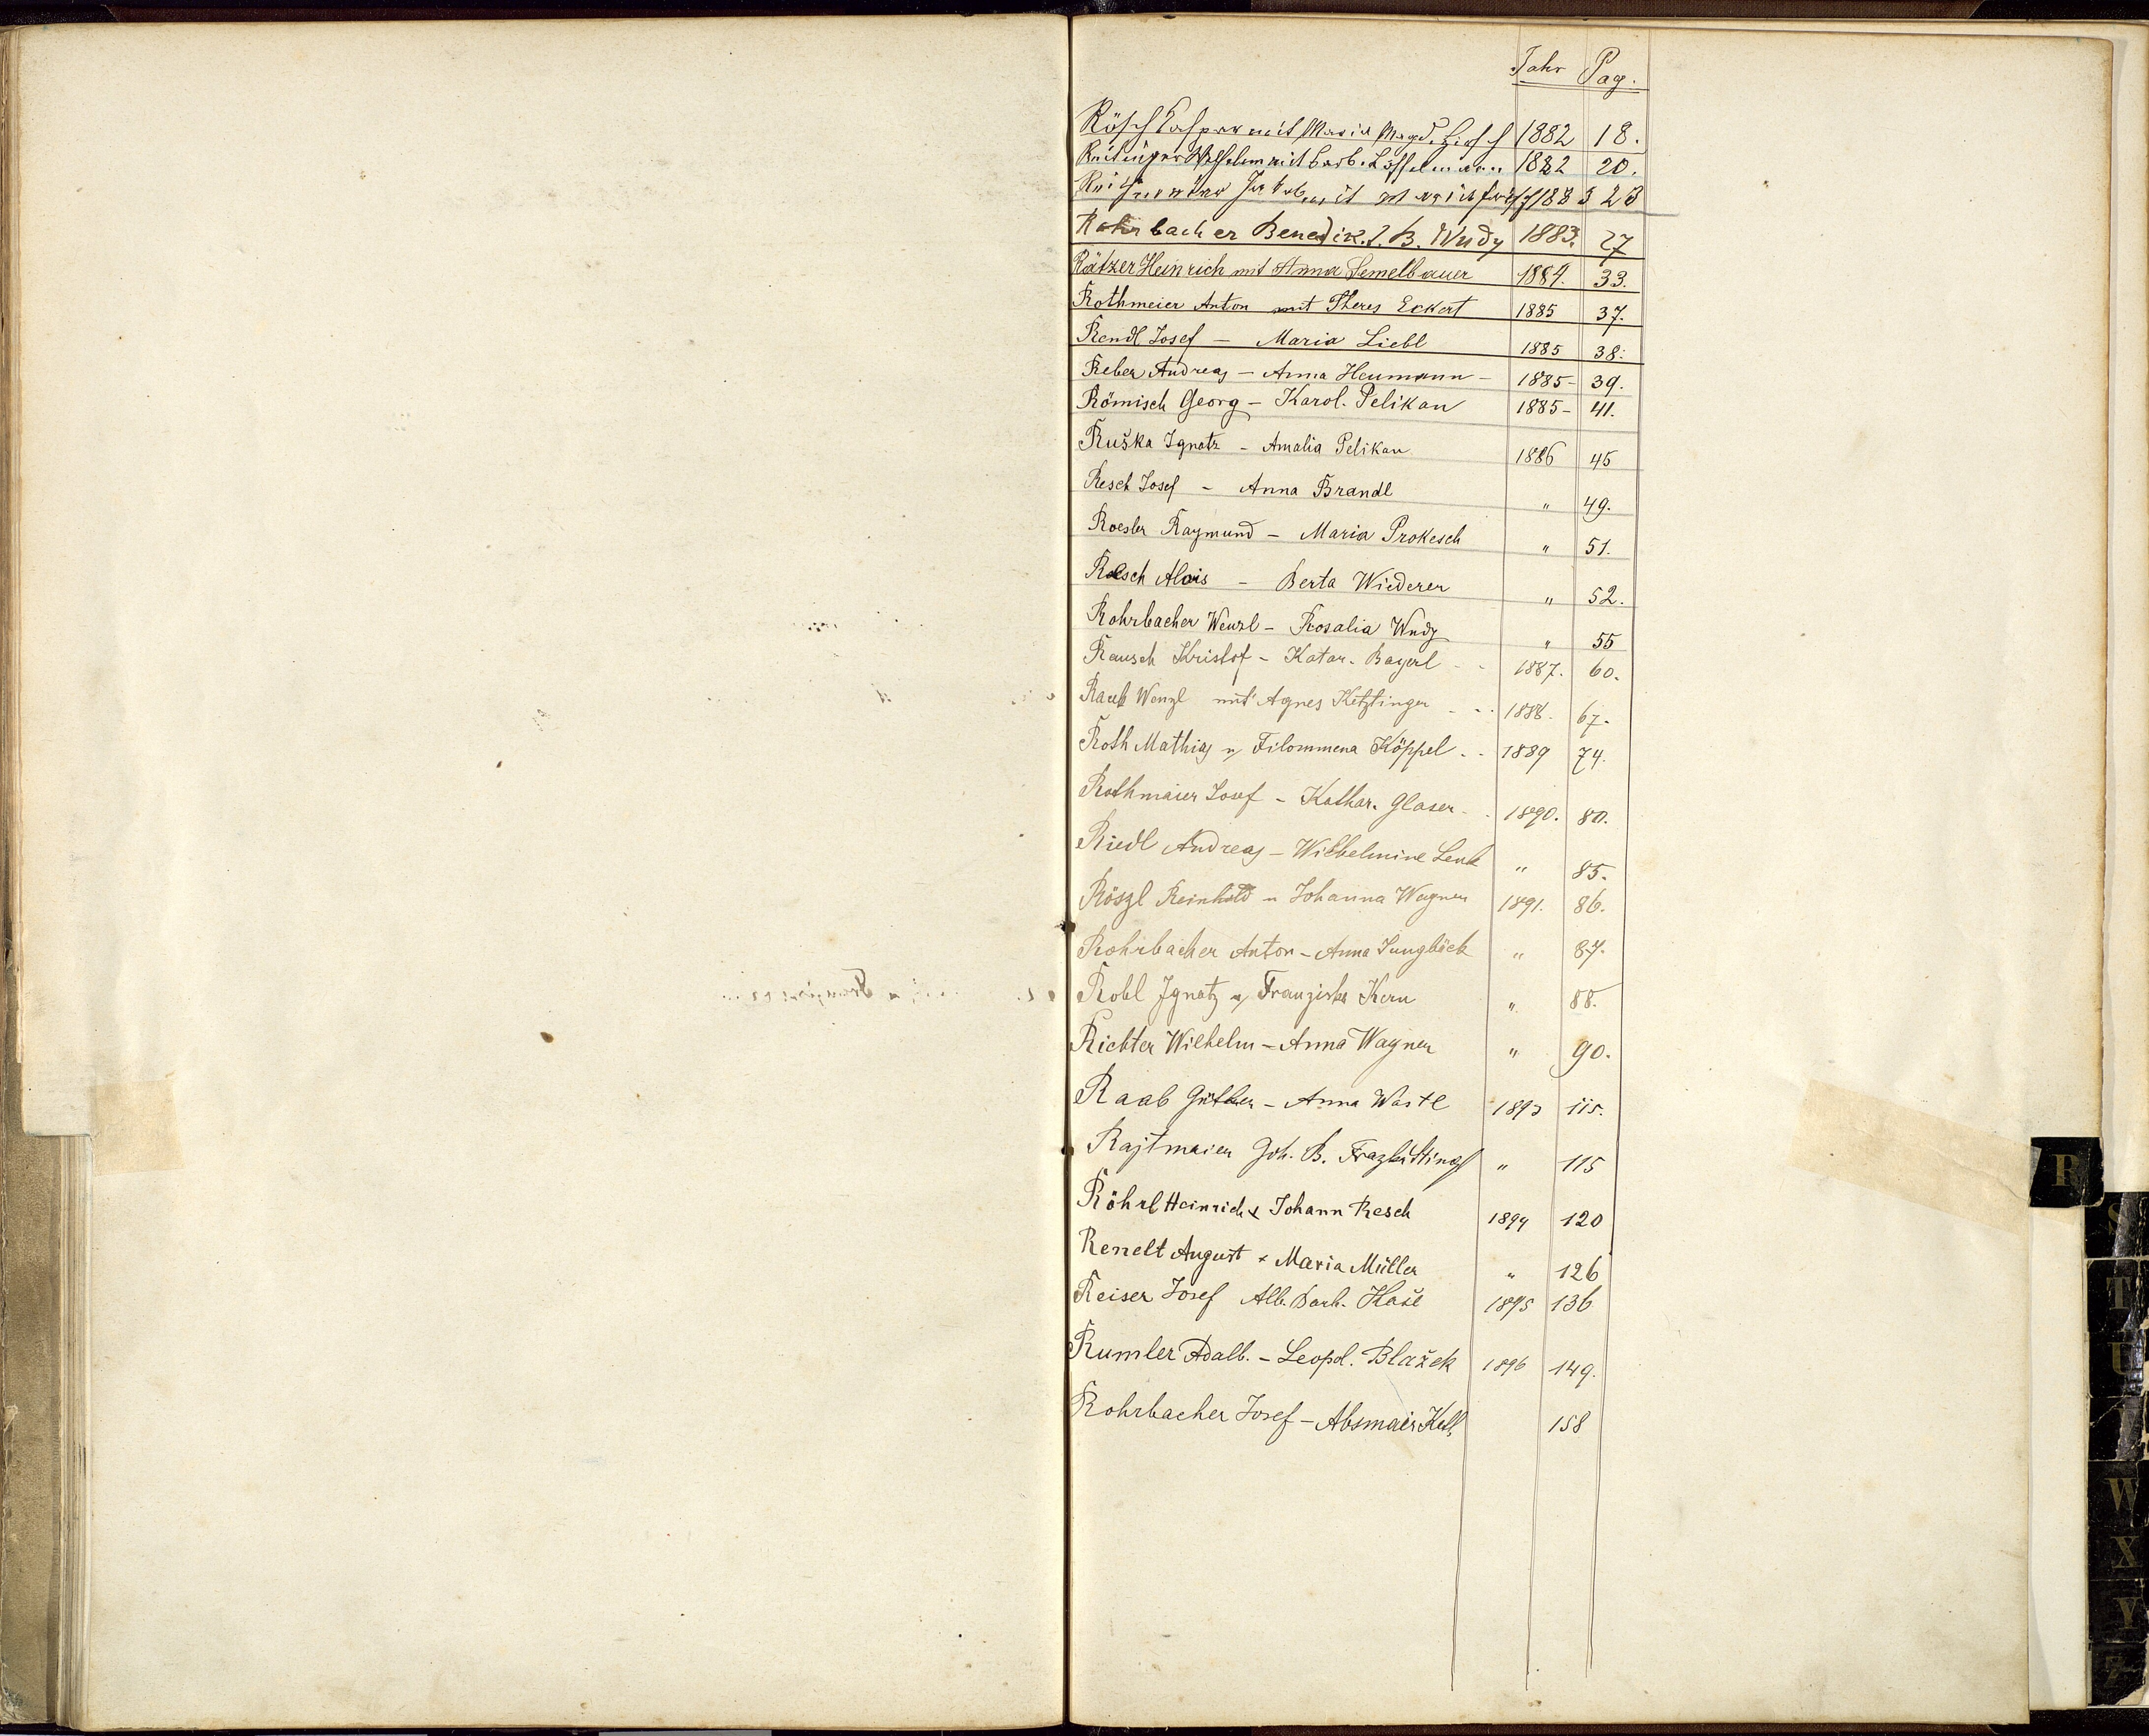 Jahr Pag.
Rösch Kaspar mit Maria Magd. 1882 18.
mit Barb. Löffelmann 1882 20.
Jakob mit 1883 23
Rohrbacher Benedik. B. Wudy 1883. 27
Rätzer Heinrich mit Anna Semelbauer 1884. 33.
Rothmeier Anton mit Theres Eckert 1885 37.
Rendl Josef — Maria Liebl 1885 38.
Reber Andreas — Anna Heumann — 1885 - 39.
Römisch Georg — Karol. Pelikan 1885 - 41.
Ruška Ignatz - Amalia Pelikan 1886 45
Resch Josef - Anna Brandl " 49.
Roesler Raymund - Maria Prokesch " 51.
Roesch Alois - Berta Wiederer " 52.
Rohrbacher Wenzl - Rosalia Wudy " 55
Rausch Kristof - Katar. Bayerl - - 1887. 60.
Raab Wenzl mit Agnes Ketzlinger - - 1888. 67.
Roth Mathias u Filommena Köppel - - 1889 74.
Rothmaier Josef - Kathar. Glaser - - 1890. 80.
Riedl Andreas - Wilhelmine Lenk " 85.
Röszl Reinhold u Johanna Wagner 1891. 86.
Rohrbacher Anton - Anna Jungbäck " 87.
Robl Ignatz u Franziska Kern " 88.
Richter Wilhelm - Anna Wagner " 90.
Raab - Anna Wastl 1893 115.
Rajtmaier Joh. B. " 115
Röhrl Heinrich x Johann Resch 1894 120
Renelt August x Maria Müller " 126
Reiser Josef Alb. Barb. 1895 136
Rumler Adalb. - Leopol. Blažek 1896 149.
Rohrbacher Josef - Absmair 158
R
S
T
U
W
X
Y
Z